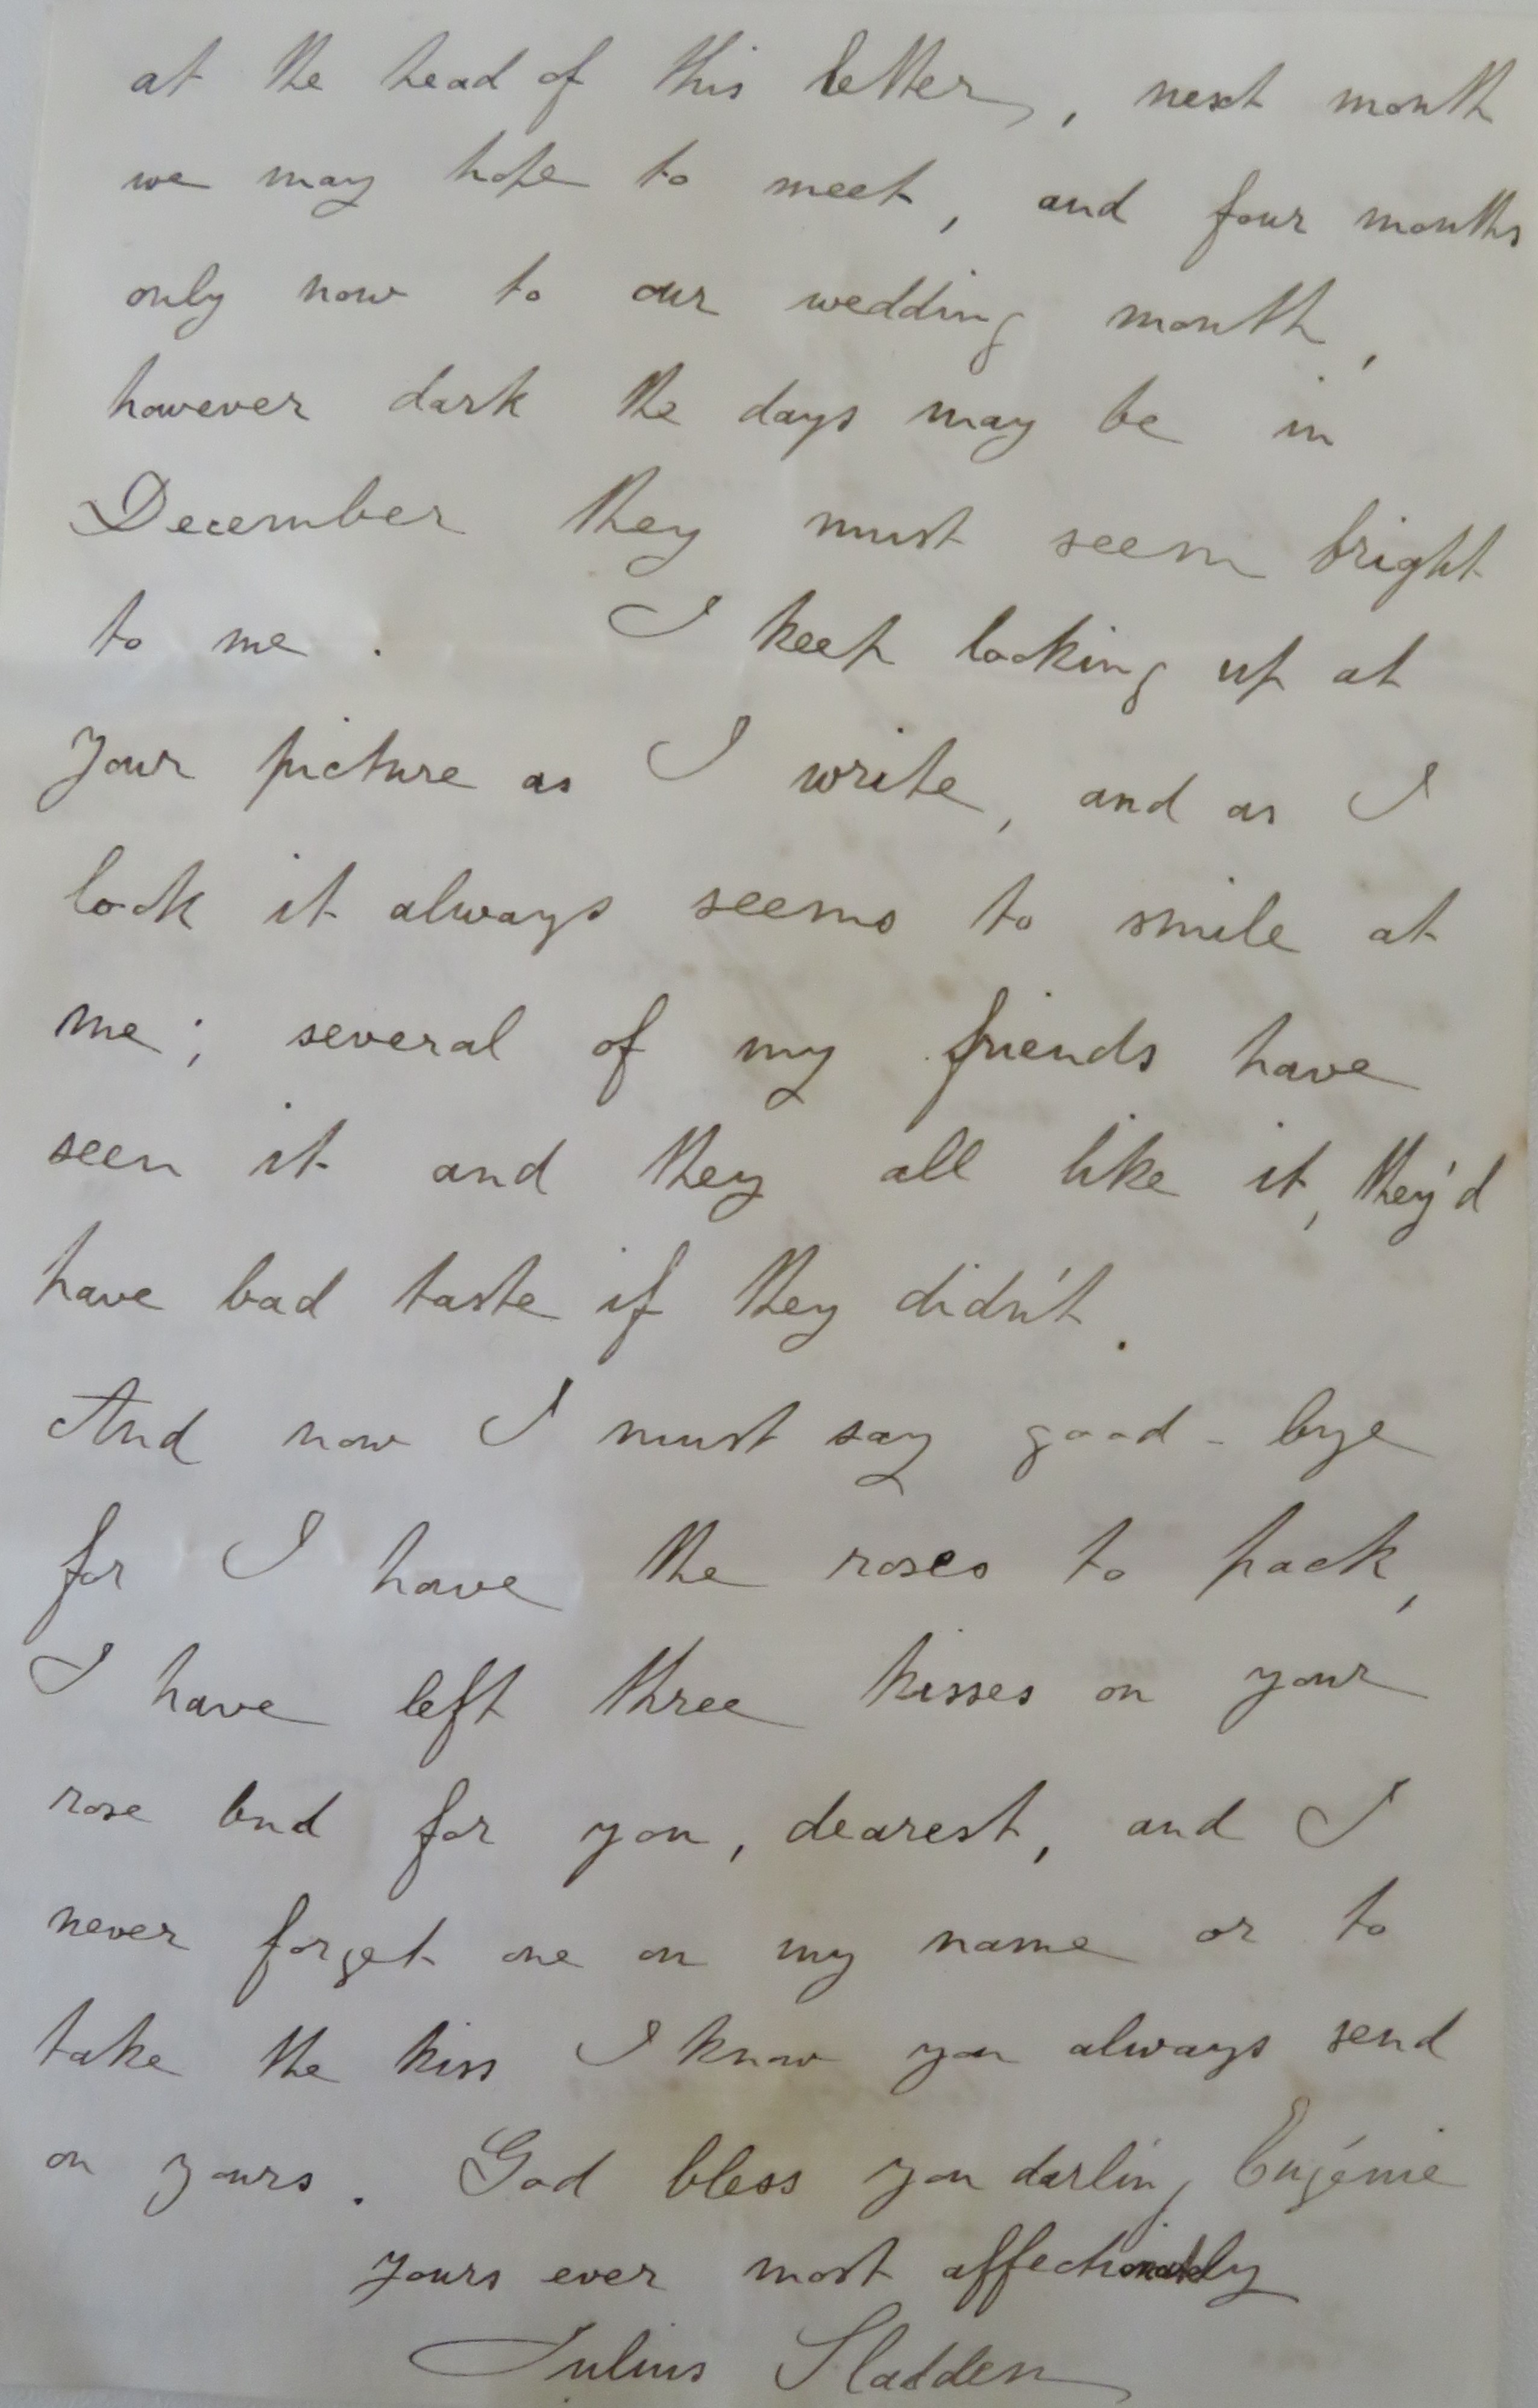 at the head of this letter, next month
we may hope to meet, and four months
only now to our wedding month,
however dark the days may be in
December they must seem bright
to me. I keep looking up at
your picture as I write, and as I
look it always seems to smile at
me; several of my friends have
seen it and they all like it, they'd
have bad taste if they didn't.
And now I must say good-bye
for I have the roses to pack,
I have left three kisses on your
rose bud for you, dearest, and I
never forget one on my name or to
take the kiss I know you always send
on yours. God bless you darling Eugénie
yours ever most affectionately
Julius Sladden